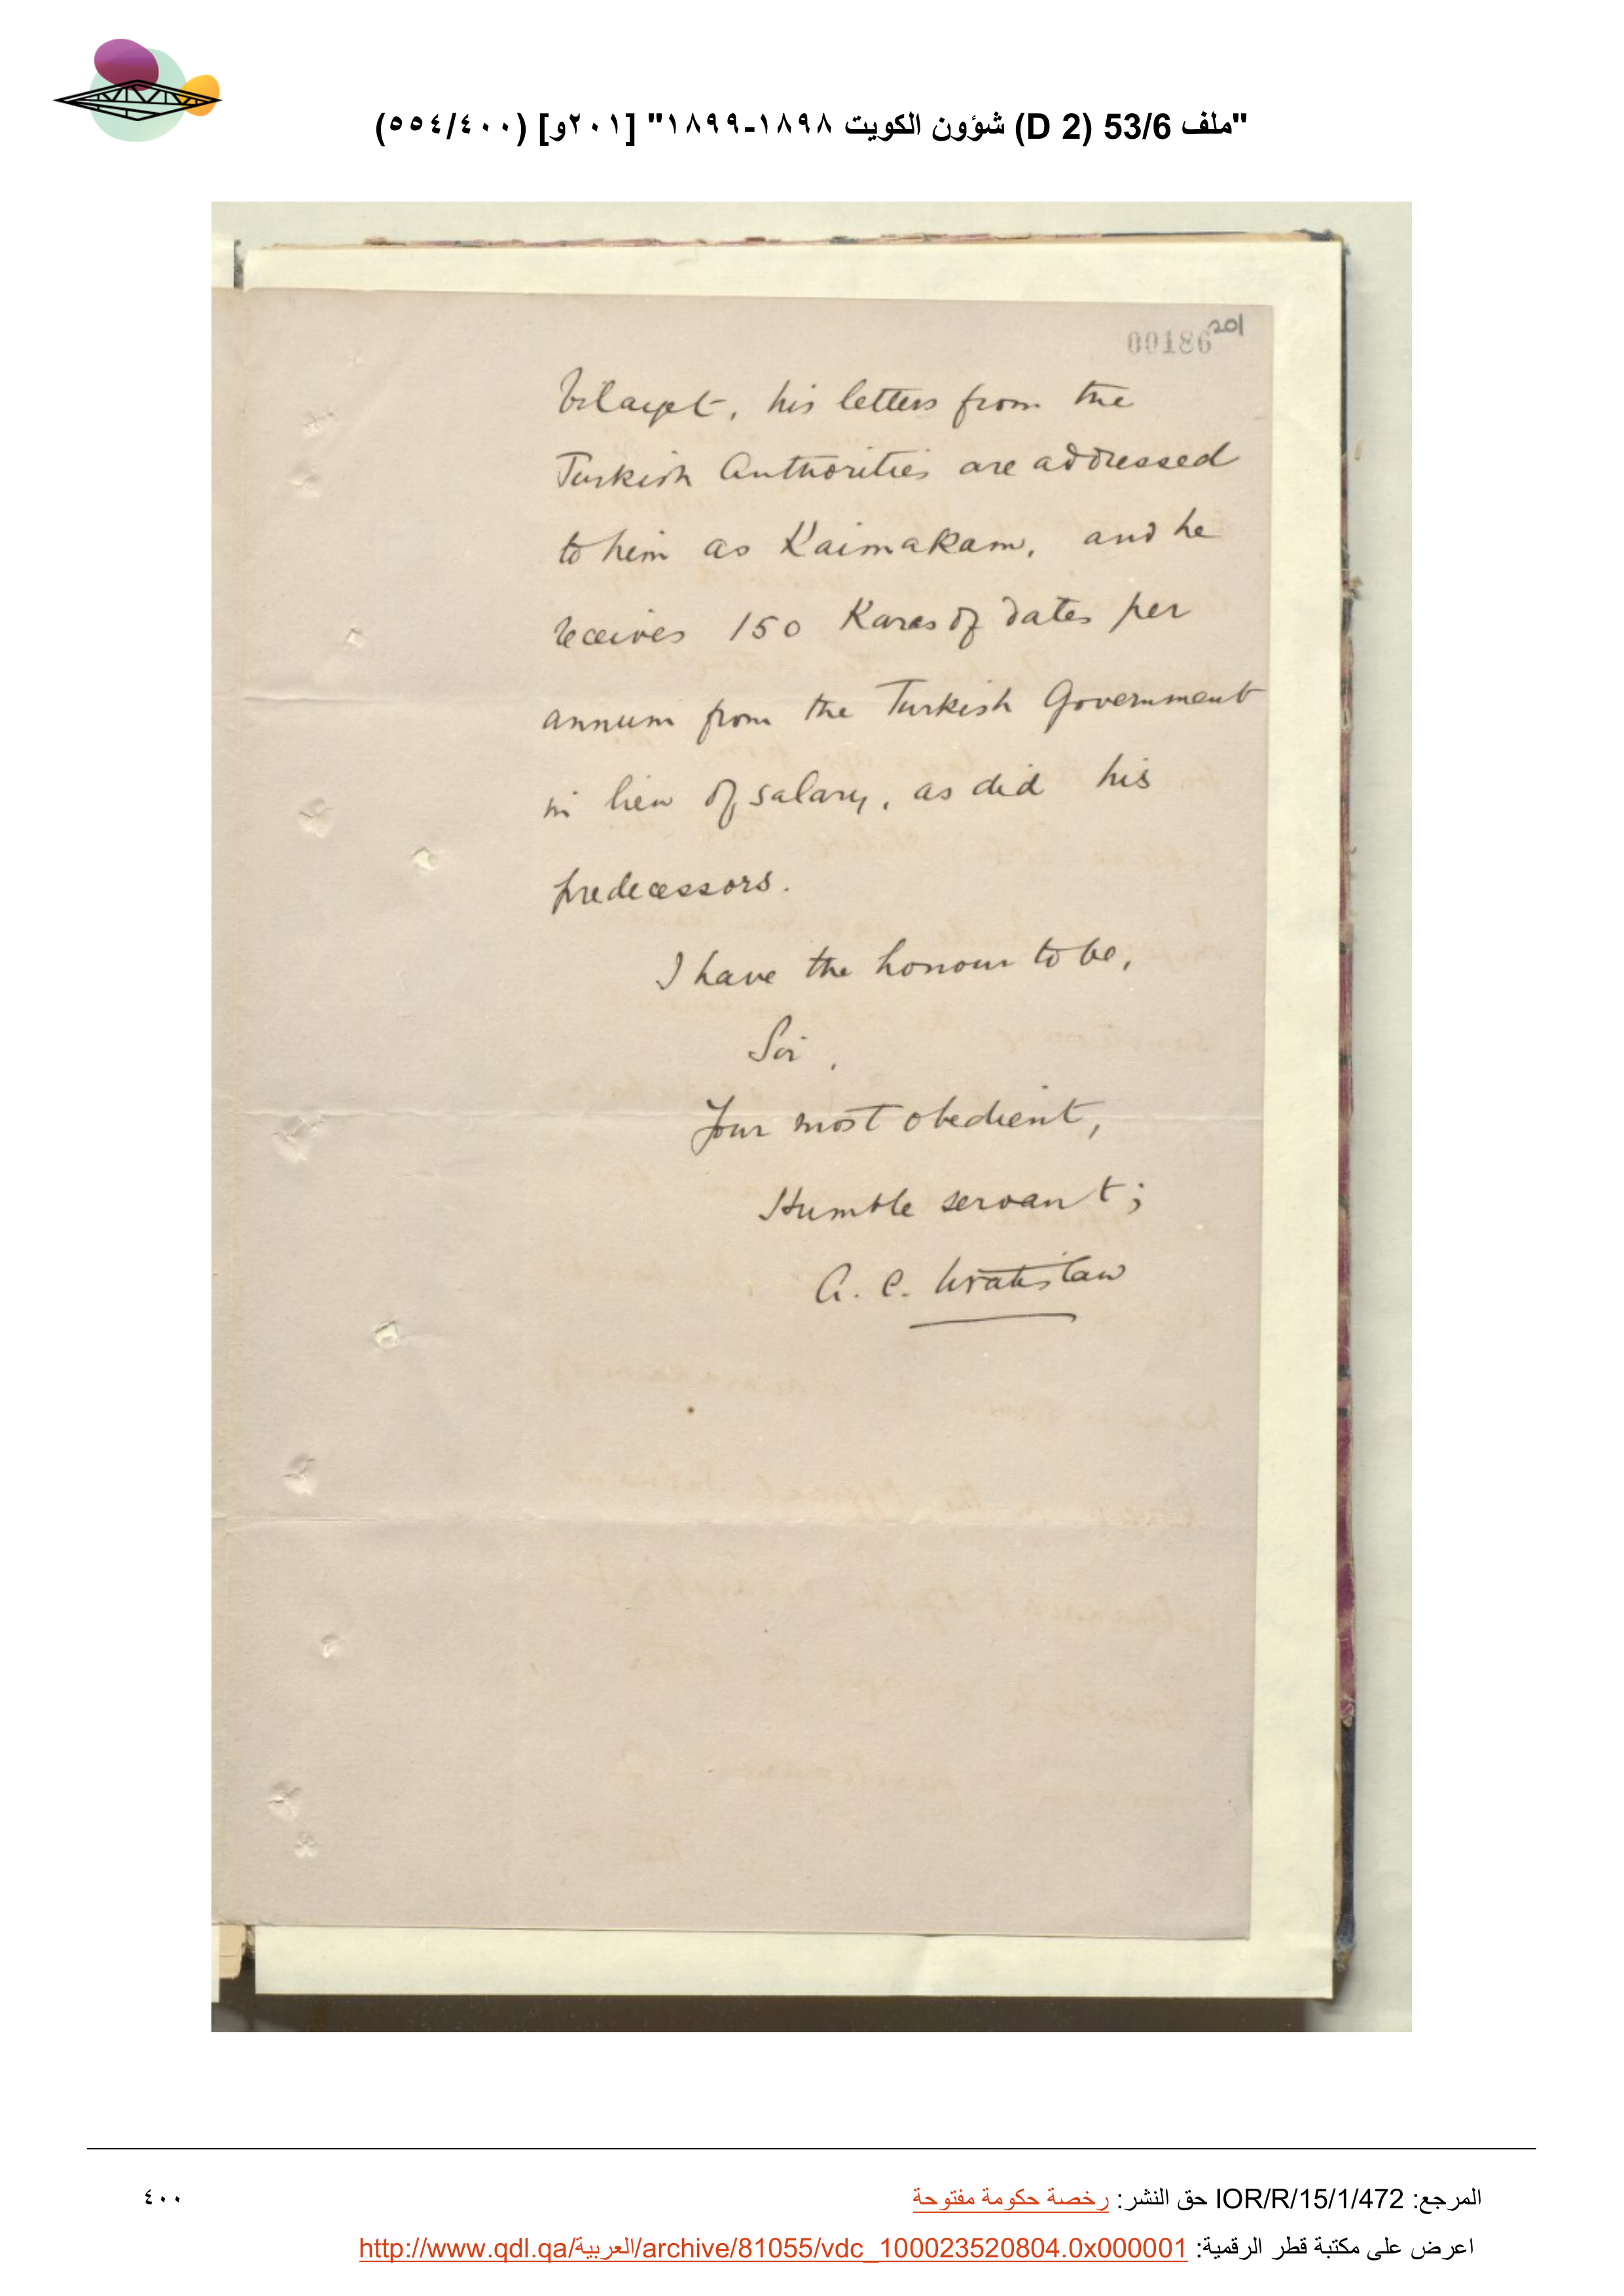 "ملف 53/6 (D 2) شؤون الكويت ١٨٩٨-١٨٩٩" [٢٠١و] (٥٥٤/٤٠٠)
00186 201
Vilayet, his letters from the
Turkish Authorities are addressed
to him as Kaimakam, and he
receives 150 Karas of dates per
annum from the Turkish Government
in lieu of salary, as did his
predecessors.
I have the honour to be,
Sir,
Your most obedient,
Humble servant;
A. C. Wratislaw
المرجع: IOR/R/15/1/472 حق النشر: رخصة حكومة مفتوحة
٤٠٠
اعرض على مكتبة قطر الرقمية: http://www.qdl.qa/العربية/archive/81055/vdc_100023520804.0x000001